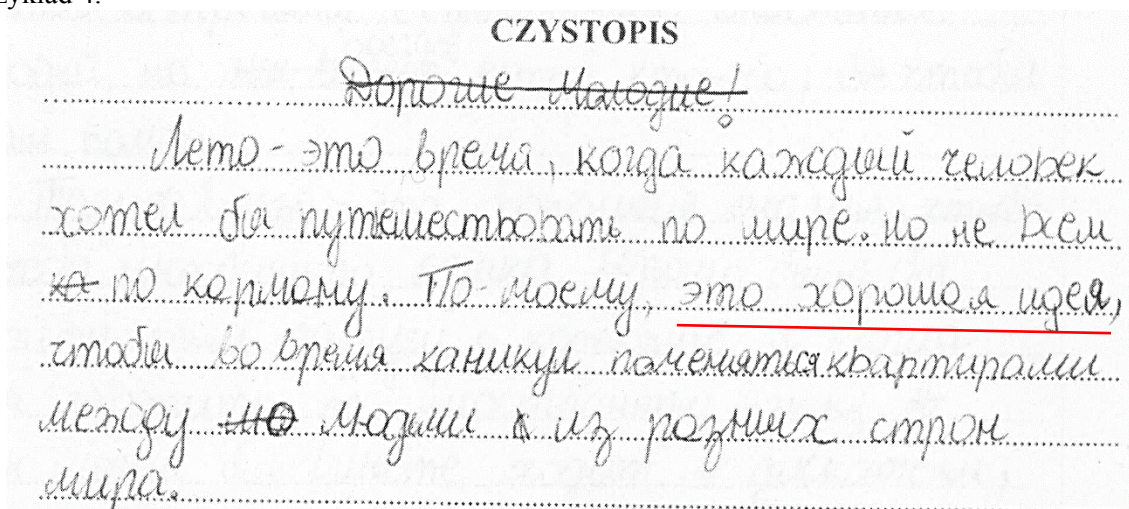 zykład 4.
CZYSTOPIS
Дорогие Молодые!
Лето - это время, когда каждый человек
хотел бы путешествовать по мире. но не всем
по карману. По-моему, это хорошая идея,
чтобы во время каникул поменяться квартирами
между людьми из разных строн
мира.